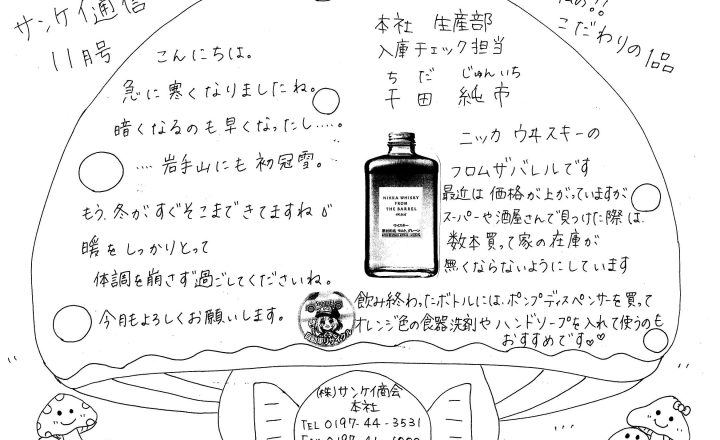 サンケイ通信
11月号
こんにちは。
急に寒くなりましたね。
暗くなるのも早くなったし……。
…. 岩手山にも初冠雪。
もう、冬がすぐそこまできてますね
暖をしっかりとって
体調を崩さず過ごしてくださいね。
今月もよろしくお願いします。
私の!!
こだわりの1品
本社 生産部
入庫チェック担当
ちだ じゅんいち
千田 純市
ニッカ ウヰスキーの
フロムザバレルです
最近は価格が上がっていますが
スーパーや酒屋さんで見つけた際は、
数本買って家の在庫が
無くならないようにしています
飲み終わったボトルには、ポンプディスペンサーを買って
オレンジ色の食器洗剤やハンドソープを入れて使うのも
おすすめです♡♡
NIKKA WHISKY
FROM
THE BARREL
ウイスキー
(株)サンケイ商会
本社
TEL 0197-44-3531